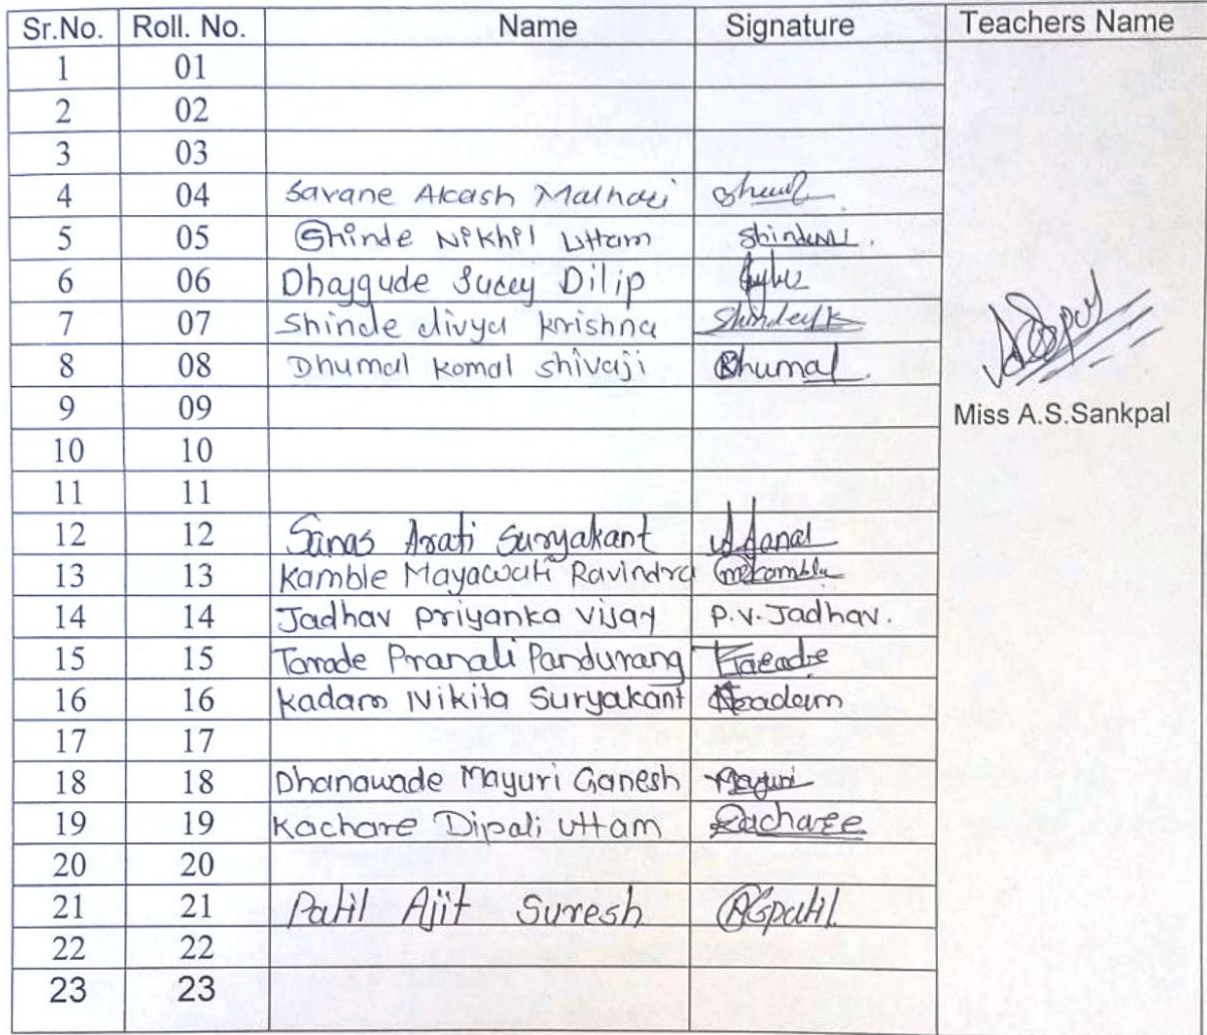 Sr.No. Roll. No. Name Signature Teachers Name
1 01
2 02
3 03
4 04 Savane Akash Malhari
5 05 Shinde Nikhil Uttam ShindeNU.
6 06 Dhajgude Dilip
7 07 Shinde divya krishna
8 08 Dhumal komal shivaji Dhumal
9 09
Miss A.S.Sankpal
10 10
11 11
12 12 Sanas Arati Suryakant
13 13 Kamble Mayawati Ravindra
14 14 Jadhav priyanka vijay P.V.Jadhav.
15 15 Tarade Pranali Pandurang
16 16 Kadam Nikita Suryakant
17 17
18 18 Dhanawade Mayuri Ganesh Mayuri
19 19 Kachare Dipali Uttam Kacharee
20 20
21 21 Patil Ajit Suresh
22 22
23 23